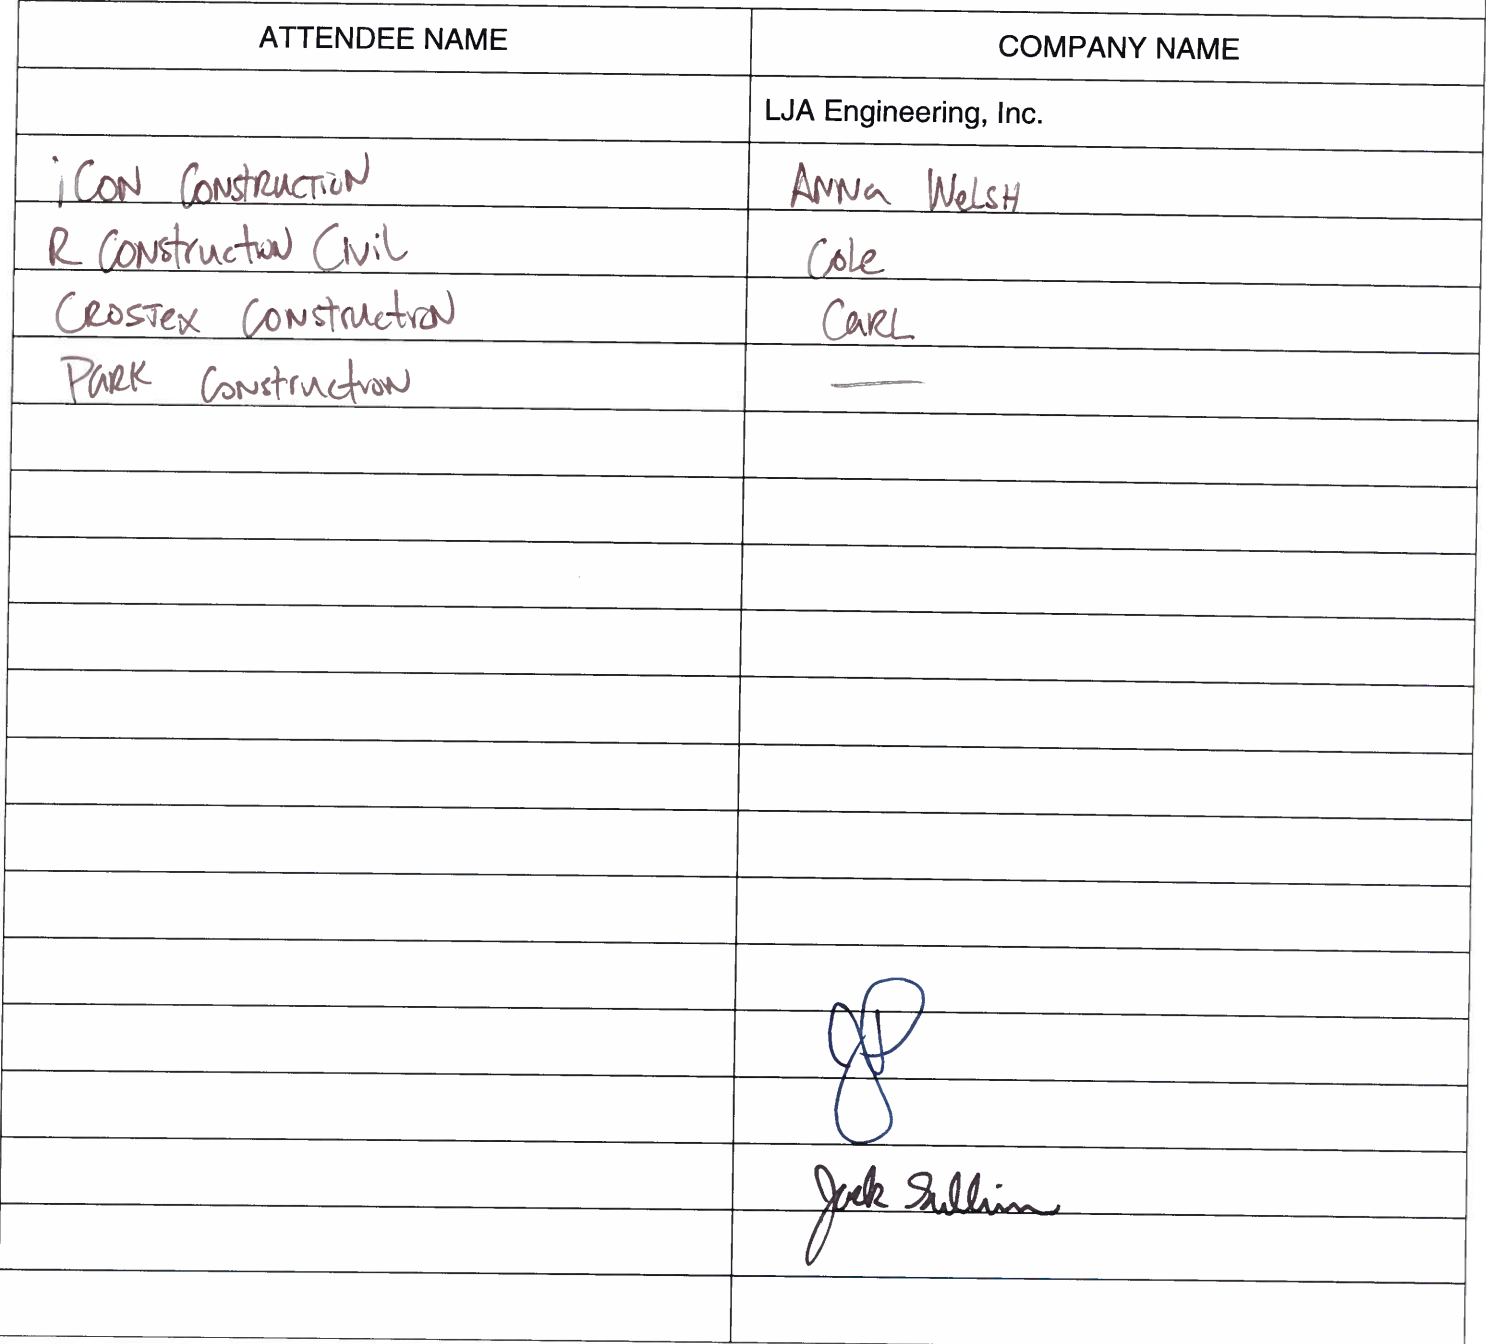 ATTENDEE NAME COMPANY NAME
LJA Engineering, Inc.
iCON CONSTRUCTION ANNA WELSH
R CONSTRUCTION CIVIL Cole
CROSTEX CONSTRUCTION CARL
PARK CONSTRUCTION —
JP
Jack Sullivan